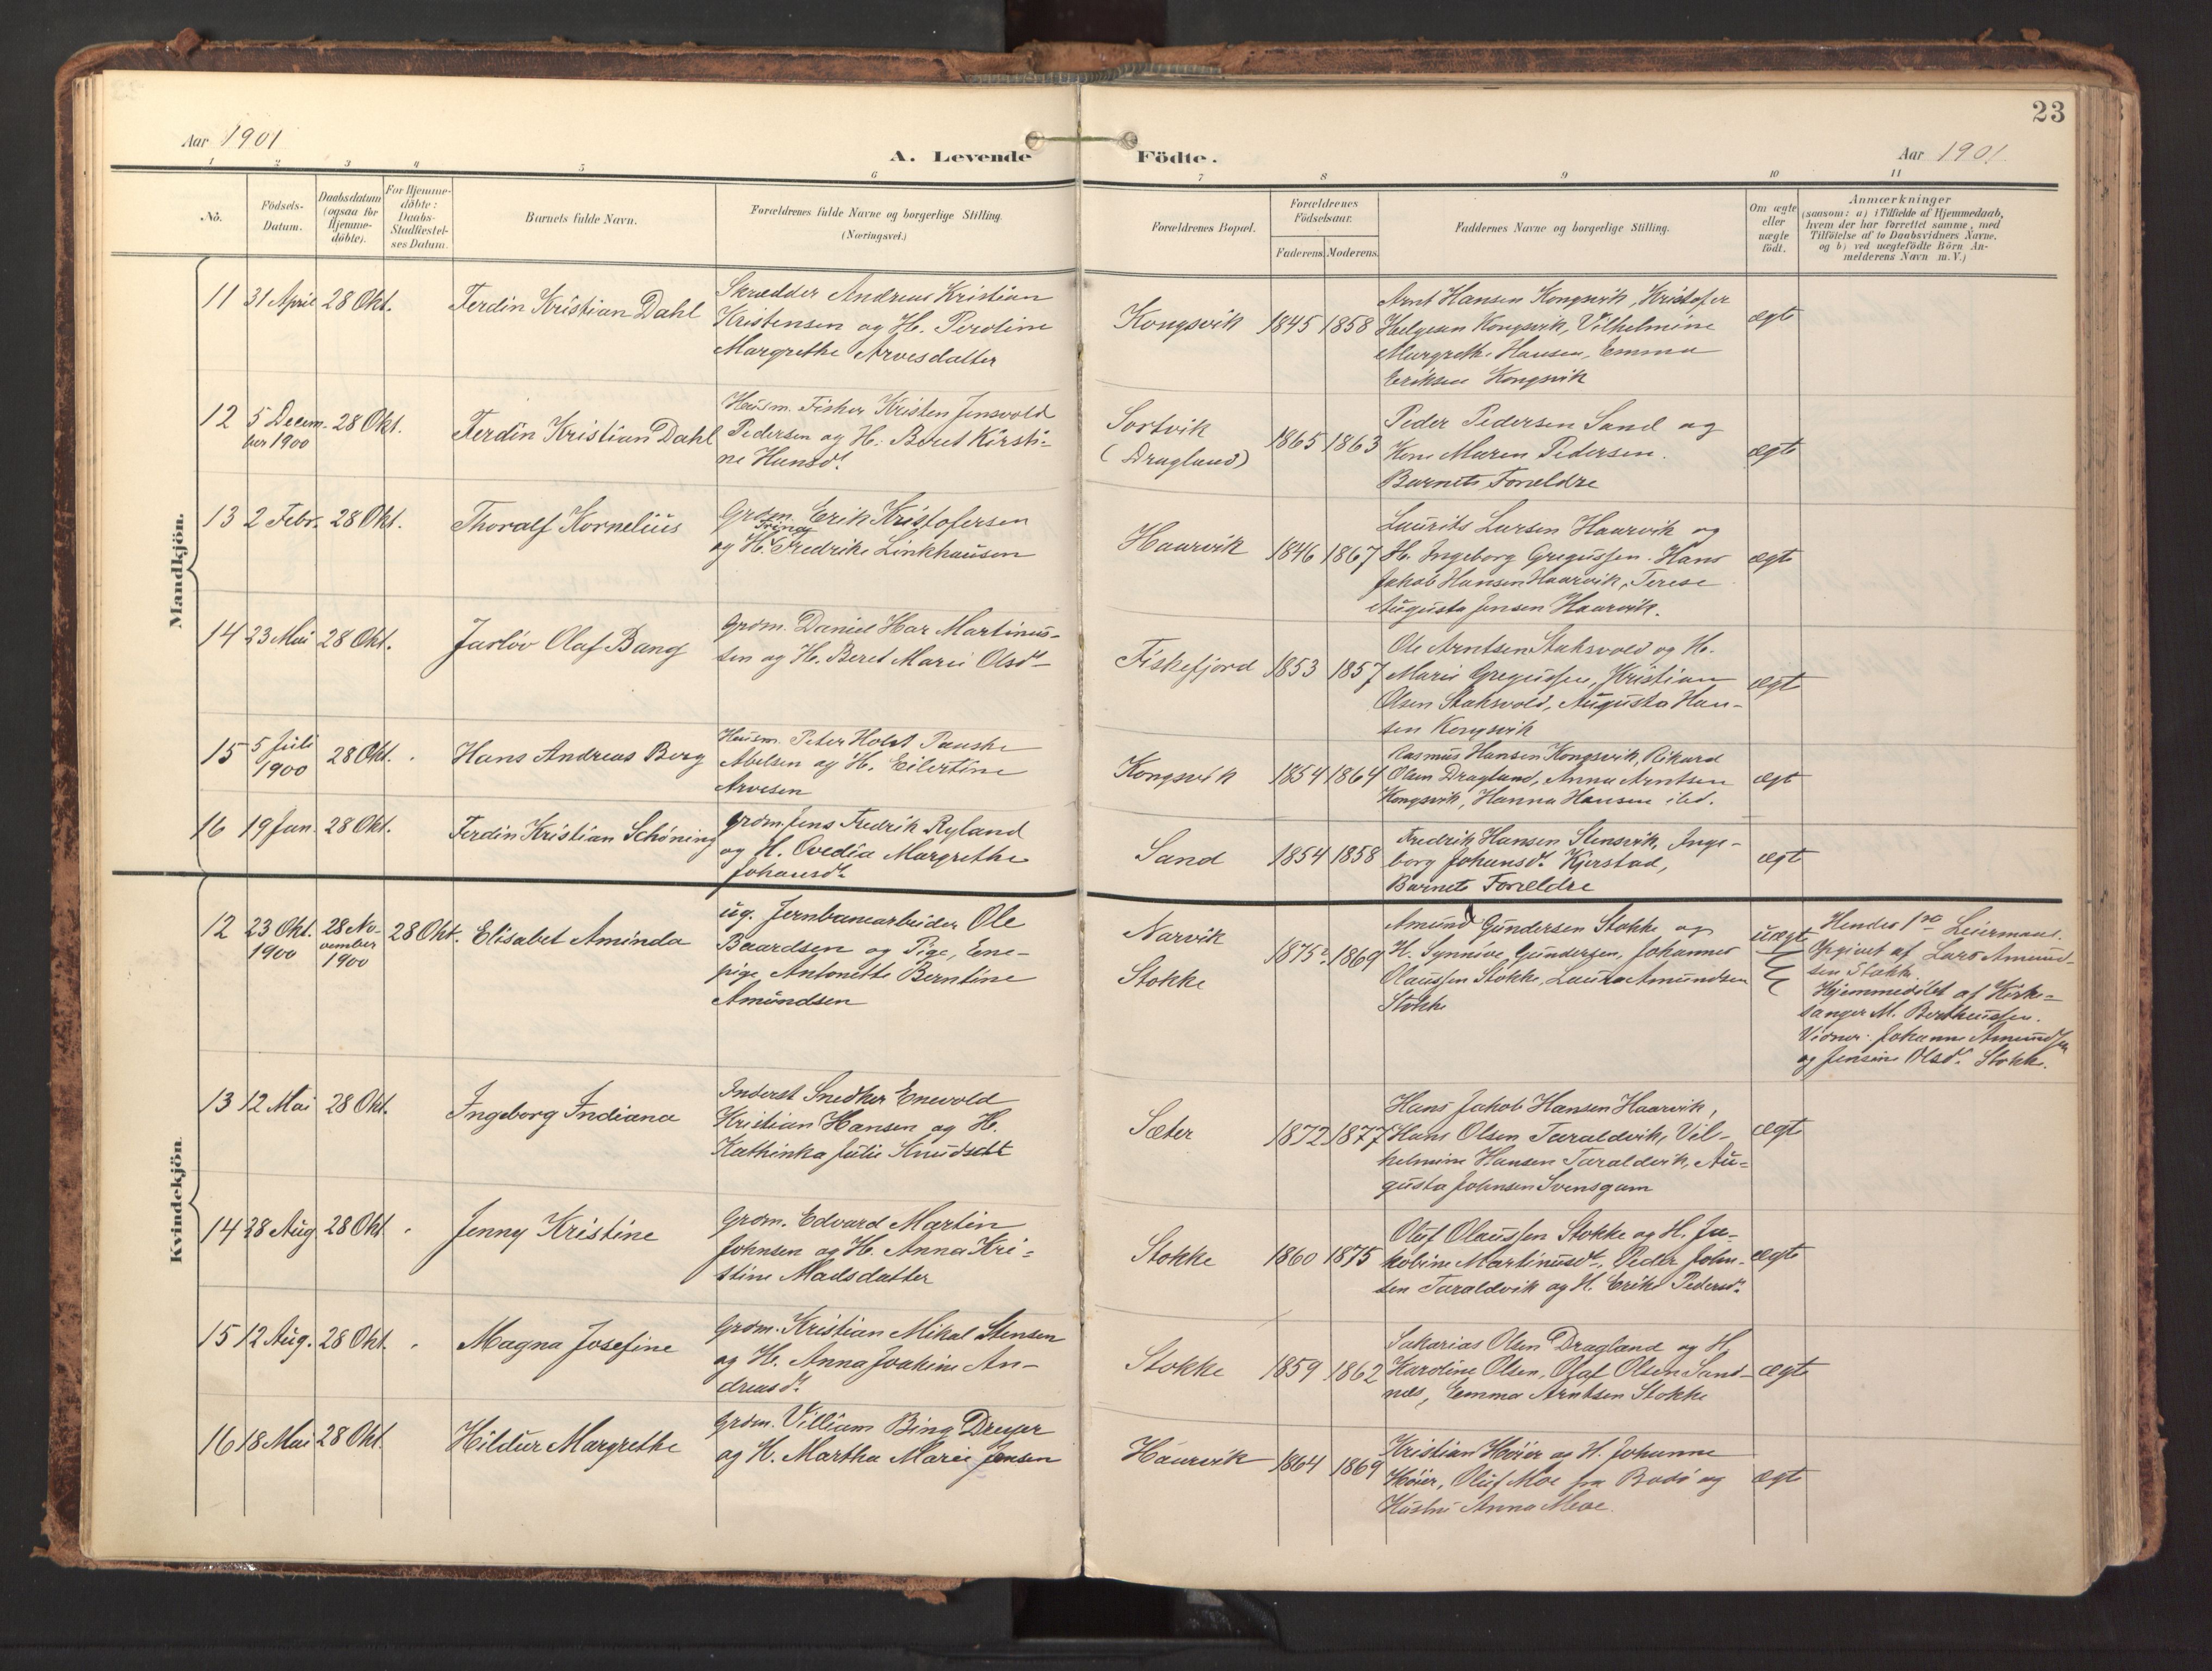 23
Aar 1901
A. Levende Födte.
Aar 1901
1 2 3 4 5 6 7 8 9 10 11
No.
Födsels-
Datum.
Daabsdatum
(ogsaa for
Hjemme-
döbte).
For Hjemme-
döbte:
Daabs-
Stadfæstel-
ses Datum.
Barnets fulde Navn.
Forældrenes fulde Navne og borgerlige Stilling.
(Næringsvei.)
Forældrenes Bopæl.
Forældrenes
Födselsaar.
Faderens. Moderens.
Faddernes Navne og borgerlige Stilling.
Om ægte
eller
uægte
födt.
Anmærkninger
(saasom: a) i Tilfælde af Hjemmedaab,
hvem der har forrettet samme, med
Tilföielse af to Daabsvidners Navne,
og b) ved uægtefödte Börn An-
melderens Navn m. V.)
Mandkjön.
11 31 April 28 Okt. Ferdin Kristian Dahl
Skrædder Andreas Kristian
Kristensen og H. Perdine
Margrethe Arvesdatter
Kongsvik 1845 1858
Arnt Hansen Kongsvik, Kristofer
Helgesen Kongsvik, Vilhelmine
Margrethe Hansen, Emma
Eriksen Kongsvik
ægte
12 5 Decem-
ber 1900
28 Okt. Ferdin Kristian Dahl
Husm. Fisker Kristen Jensvold
Pedersen og H. Beret Kirsti-
ne Hansdt.
Sortvik
(Dragland)
1865 1863
Peder Pedersen Sand og
Kone Maren Pedersen.
Barnets Forældre
ægte
13 2 Febr. 28 Okt. Thoralf Kornelius
Grdm. Erik Kristofersen
og H. Trina Fredrike Linkhausen
Haarvik 1846 1867
Laurits Larsen Haarvik og
H. Ingeborg Gregussen. Hans
Jakob Hansen Haarvik, Terese
Augusta Jensen Haarvik.
ægte
14 23 Mai 28 Okt. Jarlöv Olaf Bang
Grdm. Daniel Har Martinus-
sen og H. Beret Marie Olsdt
Fiskefjord 1853 1857
Ole Arntsen Stoksvold og H.
Marie Gregussen, Kristian
Olsen Stoksvold, Augusta Han-
sen Kongsvik
ægte
15 5 Juli
1900
28 Okt. Hans Andreas Berg
Husm. Peter Holst Pauske
Abelsen og H. Eilertine
Arvesen
Kongsvik 1854 1864
Rasmus Hansen Kongsvik, Rikard
Olsen Dragland, Anna Arntsen
Kongsvik, Hanna Hansen ibd.
ægte
16 19 Jan. 28 Okt. Ferdin Kristian Schöning
Grdm. Jens Fredrik Ryland
og H. Ovedia Margrethe
Johansdt.
Sand 1854 1858
Fredrik Hansen Stensvik, Inge-
borg Johansdt. Kjerstad,
Barnets Forældre
ægte
Kvindekjön.
12 23 Okt.
1900
28 No-
vember
1900
28 Okt. Elisabet Aminda
ug. Jernbanearbeider Ole
Baardsen og Pige, Ene-
pige Antonette Berntine
Amundsen
Narvik
Stokke
1875 1869
Amund Gundersen Stokke og
H. Synnöve Gundersen, Johannes
Olaussen Stokke, Laura Amundsen
Stokke
uægte
Hendes 1ste Leiermaal.
Opgivet af Lars Amund-
sen Stokke.
Hjemmedöbt af Kirke-
sanger M. Bertheussen.
Vidner: Johanne Amundsen
og Jensine Olsdt. Stokke.
13 12 Mai 28 Okt. Ingeborg Indiana
Inderst Snedker Enevold
Kristian Hansen og H.
Kathinka Julie Knudsdt
Sæter 1872 1877
Hans Jakob Hansen Haarvik,
Hans Olsen Taraldvik, Vil-
helmine Hansen Taraldvik, Au-
gusta Johnsen Svensgam
ægte
14 28 Aug. 28 Okt. Jenny Kristine
Grdm. Edvard Martin
Johnsen og H. Anna Kri-
stine Madsdatter
Stokke 1860 1875
Oluf Olaussen Stokke og H. Ja-
kobine Martinusdt, Peder John-
sen Taraldvik og H. Erika Pedersdt.
ægte
15 12 Aug. 28 Okt. Magna Josefine
Grdm. Kristian Mikal Stensen
og H. Anna Joakine An-
dreasdt.
Stokke 1859 1862
Sakarias Olsen Dragland og H.
Karoline Olsen, Olaf Olsen Sand-
næs, Emma Arntsen Stokke
ægte
16 18 Mai 28 Okt. Hildur Margrethe
Grdm. Villiam Bing Dreyer
og H. Martha Marie Jensen
Haarvik 1864 1869
Kristian Höier og H. Johanne
Höier, Oluf Moe fra Bodö og
Hustru Anna Moe.
ægte